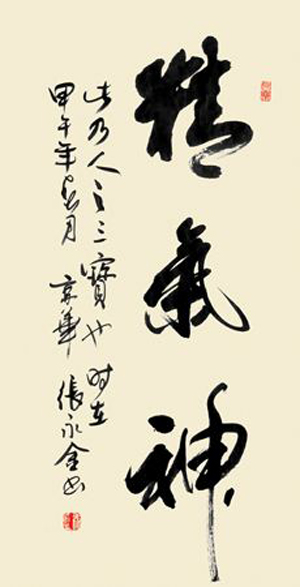 精氣神
此乃人之三寶也时在
甲午年月京華張永金书